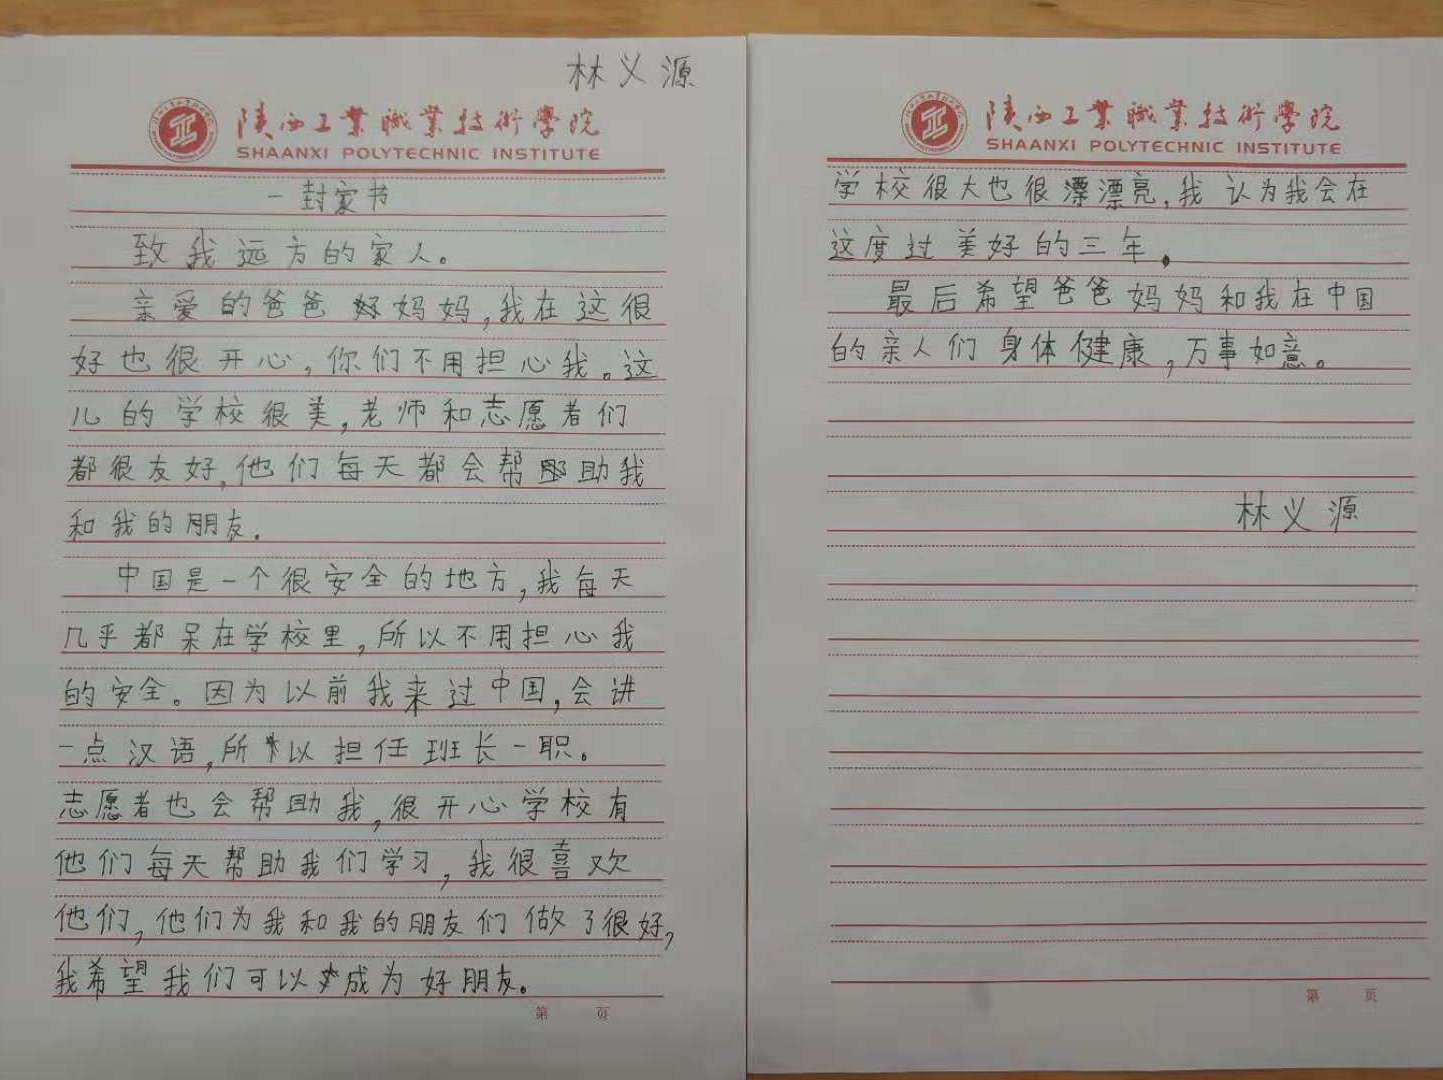 林义源
陕西工业职业技术学院
SHAANXI POLYTECHNIC INSTITUTE
一封家书
致我远方的家人。
亲爱的爸爸妈妈，我在这很
好也很开心，你们不用担心我。这
儿的学校很美，老师和志愿者们
都很友好，他们每天都会帮助我
和我的朋友。
中国是一个很安全的地方，我每天
几乎都呆在学校里，所以不用担心我
的安全。因为以前我来过中国，会讲
一点汉语，所以担任班长一职。
志愿者也会帮助我，很开心学校有
他们每天帮助我们学习，我很喜欢
他们，他们为我和我的朋友们做了很好，
我希望我们可以成为好朋友。
第 页
陕西工业职业技术学院
SHAANXI POLYTECHNIC INSTITUTE
学校很大也很漂亮，我认为我会在
这度过美好的三年。
最后希望爸爸妈妈和我在中国
的亲人们身体健康，万事如意。
林义源
第 页